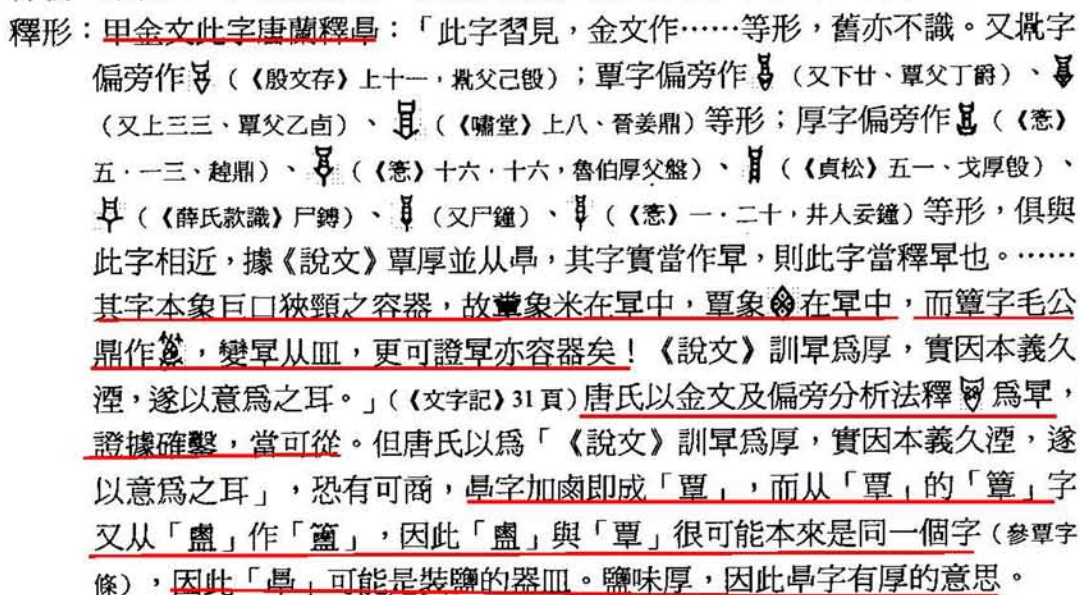 釋形：甲金文此字唐蘭釋㫗：「此字習見，金文作……等形，舊亦不識。又㯱字
偏旁作（《殷文存》上十一，父己𣪘）；覃字偏旁作（又下廿、覃父丁爵）、
（又上三三、覃父乙卣）、（《嘯堂》上八、晉姜鼎）等形；厚字偏旁作（《愙》
五．一三、趠鼎）、（《愙》十六．十六，魯伯厚父盤）、（《貞松》五一、戈厚𣪘）、
（《薛氏款識》尸鎛）、（又尸鐘）、（《愙》一．二十，井人妄鐘）等形，俱與
此字相近，據《說文》覃厚並从㫗，其字實當作㫗，則此字當釋㫗也。……
其字本象巨口狹頸之容器，故象米在㫗中，覃象在㫗中，而簟字毛公
鼎作，變㫗从皿，更可證㫗亦容器矣！《說文》訓㫗為厚，實因本義久
湮，遂以意為之耳。」（《文字記》31頁）唐氏以金文及偏旁分析法釋為㫗，
證據確鑿，當可從。但唐氏以為「《說文》訓㫗為厚，實因本義久湮，遂
以意為之耳」，恐有可商，㫗字加鹵即成「覃」，而从「覃」的「簟」字
又从「䀋」作「」，因此「䀋」與「覃」很可能本來是同一個字（參覃字
條），因此「㫗」可能是裝鹽的器皿。鹽味厚，因此㫗字有厚的意思。